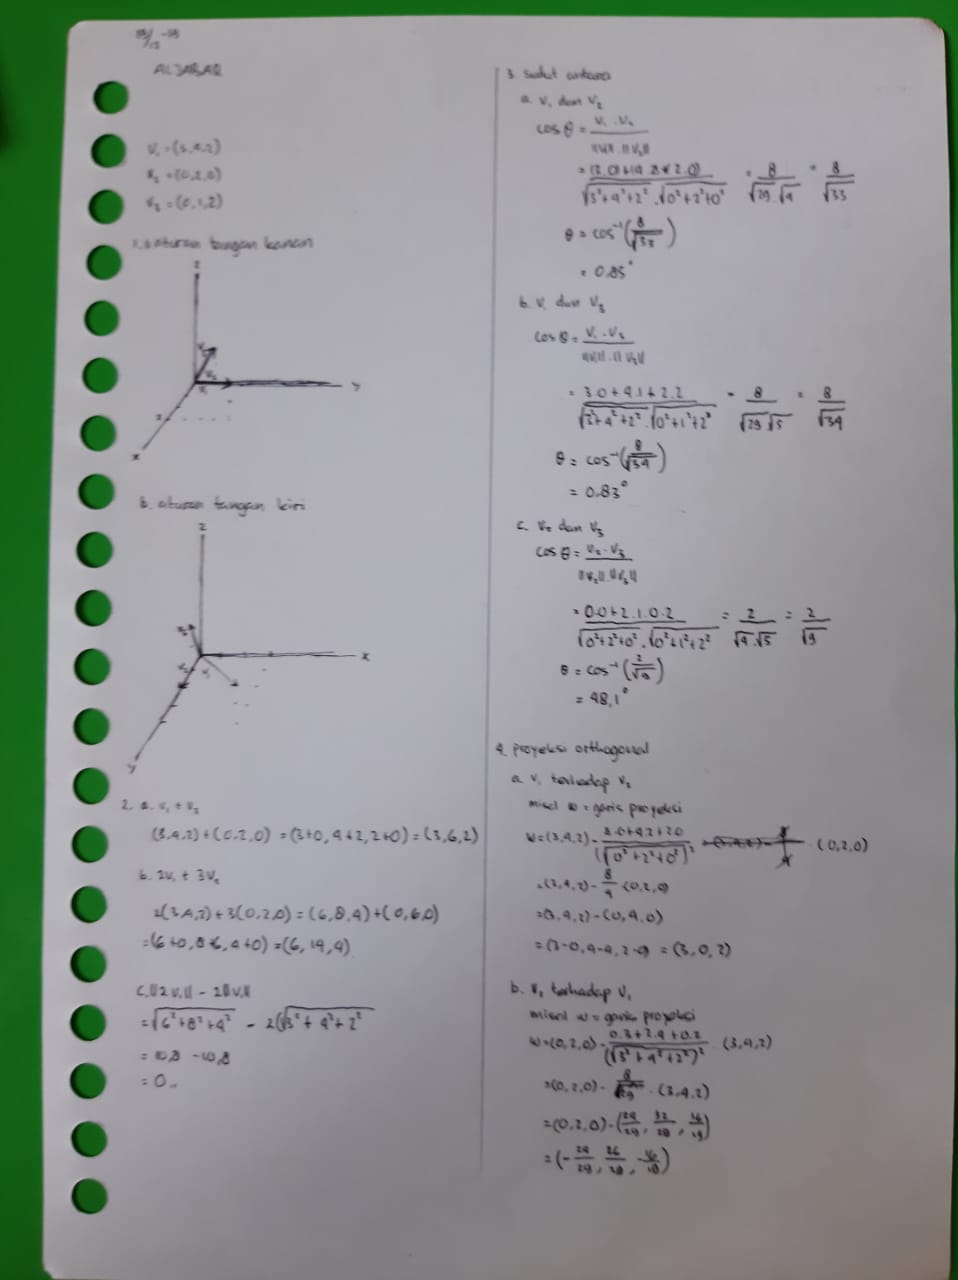 ALJABAR
V₁ = (3,4,2)
V₂ = (0,2,0)
V₃ = (0,1,2)
1. a. aturan tangan kanan
z
V₃
V₂
V₁
y
x
b. aturan tangan kiri
z
V₃
V₂
V₁
x
y
2. a. V₁ + V₂
(3,4,2) + (0,2,0) = (3+0, 4+2, 2+0) = (3,6,2)
b. 2V₁ + 3V₂
2(3,4,2) + 3(0,2,0) = (6,8,4) + (0,6,0)
= (6+0, 8+6, 4+0) = (6,14,4)
c. ||2V₁|| - 2||V₁||
= √6²+8²+4² - 2(√3²+4²+2²
= 10,8 - 10,8
= 0
3. Sudut antara
a. V₁ dan V₂
cos θ = V₁ . V₂ / ||V₁|| . ||V₂||
= (3.0)+(4.2)+(2.0) / √3²+4²+2² . √0²+2²+0² = 8 / √29 . √4 = 8 / √33
θ = cos⁻¹(8/√33)
= 0.85°
b. V₁ dan V₃
cos θ = V₁ . V₃ / ||V₁|| . ||V₃||
= 3.0+4.1+2.2 / √3²+4²+2² . √0²+1²+2² = 8 / √29 √5 = 8 / √34
θ = cos⁻¹(8/√34)
= 0.83°
c. V₂ dan V₃
cos θ = V₂ . V₃ / ||V₂|| . ||V₃||
= 0.0+2.1.0.2 / √0²+2²+0² . √0²+1²+2² = 2 / √4 . √5 = 2 / √9
θ = cos⁻¹(2/√9)
= 48,1°
4. proyeksi orthogonal
a. V₁ terhadap V₂
misal w = garis proyeksi
w = (3,4,2) - 3.0+4.2+2.0 / (√0²+2²+0²)² . (0,2,0)
= (3,4,2) - 8/4 . (0,2,0)
= (3,4,2) - (0,4,0)
= (3-0, 4-4, 2-0) = (3,0,2)
b. V₂ terhadap V₁
misal w = garis proyeksi
w = (0,2,0) - 0.3+2.4+0.2 / (√3²+4²+2²)² (3,4,2)
= (0,2,0) - 8/29 . (3,4,2)
= (0,2,0) - (24/29, 32/29, 16/29)
= (-24/29, 26/29, -16/29)